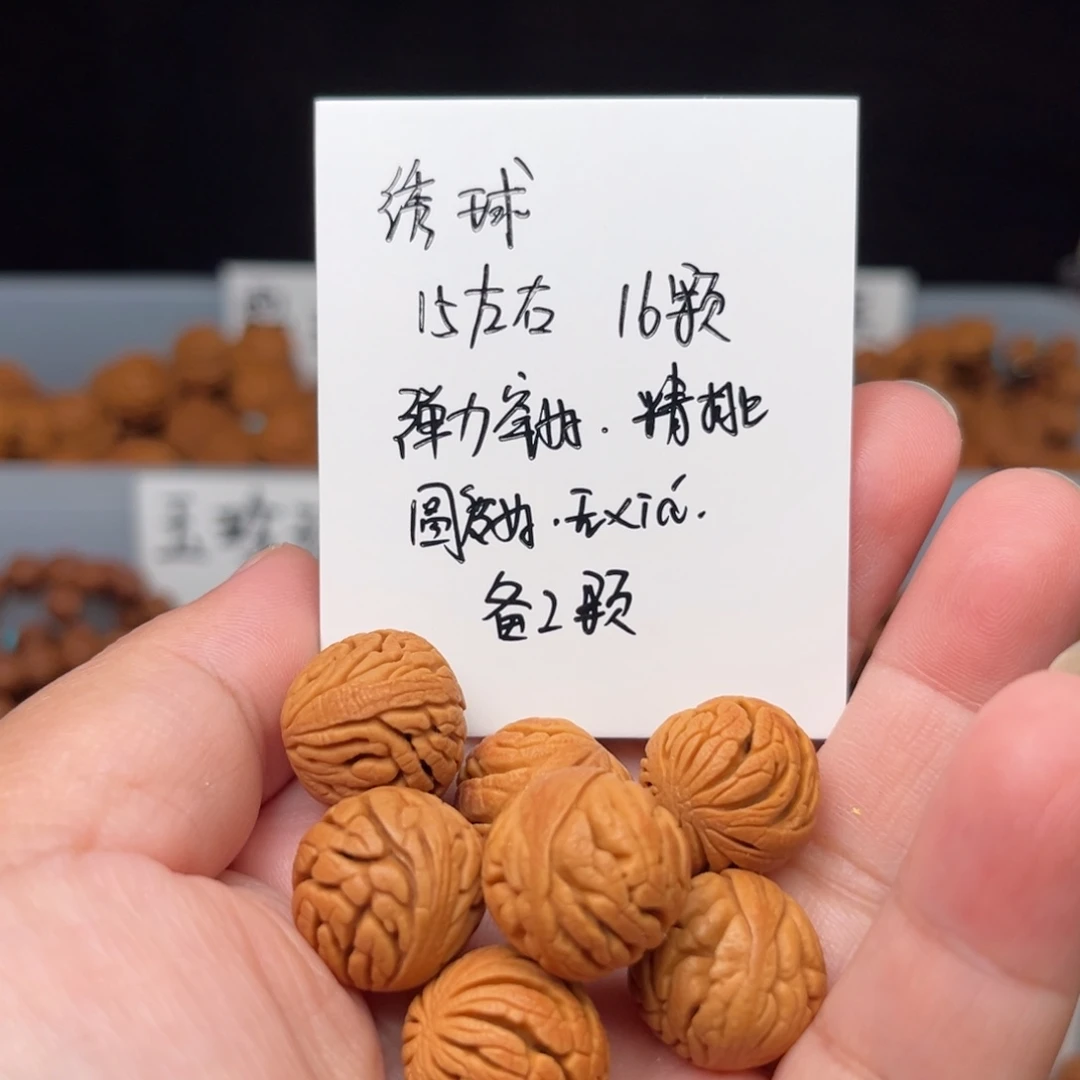 绣球
15左右 16颗
弹力穿好.精挑
圆度好.无xiá.
备2颗